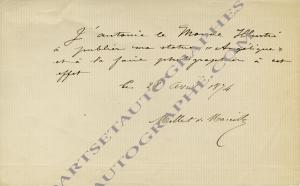 J'autorise le Monde Illustré
à publier ma statue « Angélique »
et à la faire photographier à cet
effet
Ce 28 Avril 1874
Mallet de
ARTSETAUTOGRAPHES
AUTOGRAPHE.COM